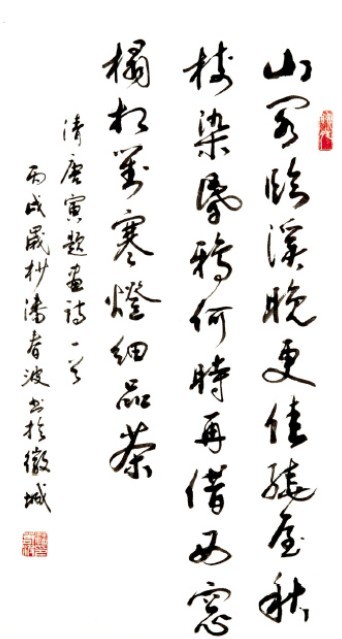 山閣臨溪晚更佳繞屋秋
枝染昏鴉何時再借西窗
榻相對寒燈細品茶
清唐寅題畫詩一首
丙戌歲杪潘春波书於徽城